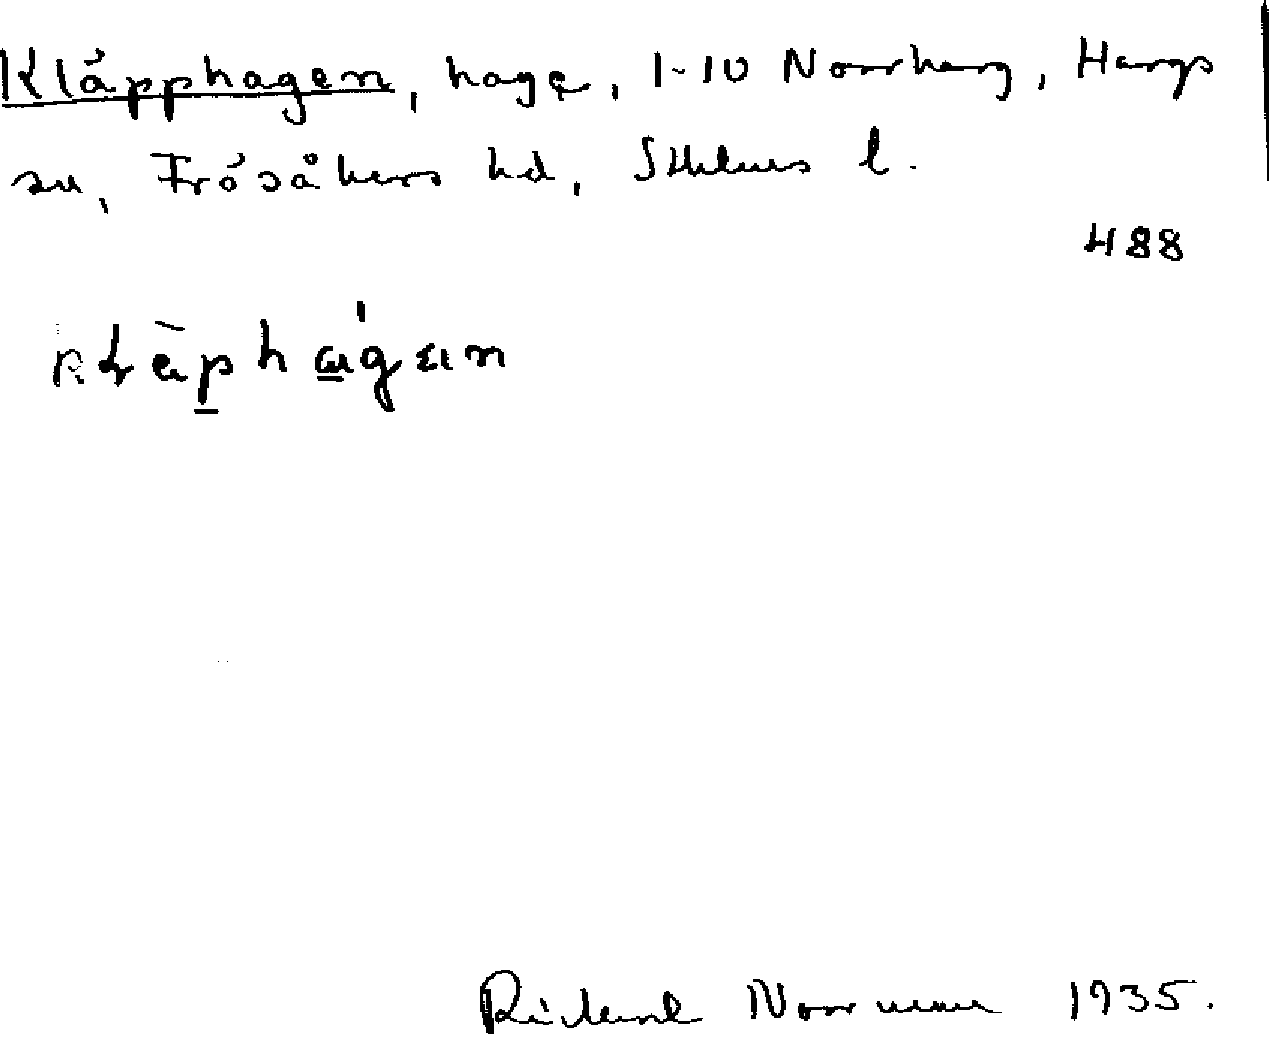 Kläpphagen, hage, 1-10 Norrharg, Hargs
sn, Frösåkers hd, Sthlms l.
488
Rickard Norrman 1935.